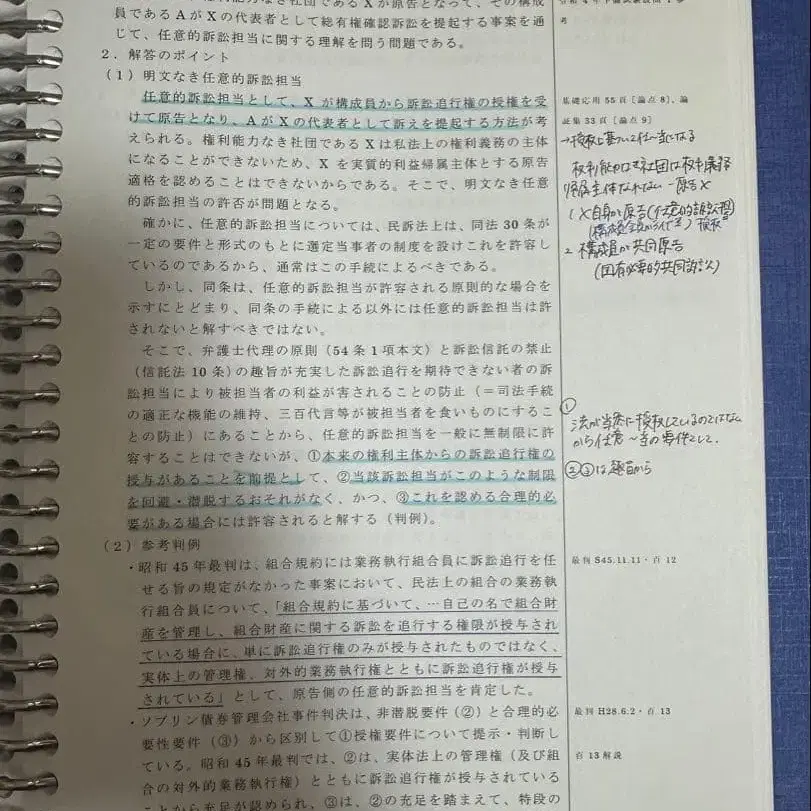 員であるAがXの代表者として総有権確認訴訟を提起する事案を通
じて、任意的訴訟担当に関する理解を問う問題である。
考
2．解答のポイント
（1）明文なき任意的訴訟担当
任意的訴訟担当として、Xが構成員から訴訟追行権の授権を受
けて原告となり、AがXの代表者として訴えを提起する方法が考
えられる。権利能力なき社団であるXは私法上の権利義務の主体
になることができないため、Xを実質的利益帰属主体とする原告
適格を認めることはできないからである。そこで、明文なき任意
的訴訟担当の許否が問題となる。
確かに、任意的訴訟担当については、民訴法上は、同法30条が
一定の要件と形式のもとに選定当事者の制度を設けこれを許容し
ているのであるから、通常はこの手続によるべきである。
しかし、同条は、任意的訴訟担当が許容される原則的な場合を
示すにとどまり、同条の手続による以外には任意的訴訟担当は許
されないと解すべきではない。
そこで、弁護士代理の原則（54条1項本文）と訴訟信託の禁止
（信託法10条）の趣旨が充実した訴訟追行を期待できない者の訴
訟担当により被担当者の利益が害されることの防止（＝司法手続
の適正な機能の維持、三百代言等が被担当者を食いものにするこ
との防止）にあることから、任意的訴訟担当を一般に無制限に許
容することはできないが、①本来の権利主体からの訴訟追行権の
授与があることを前提として、②当該訴訟担当がこのような制限
を回避・潜脱するおそれがなく、かつ、③これを認める合理的必
要がある場合には許容されると解する（判例）。
（2）参考判例
・昭和45年最判は、組合規約には業務執行組合員に訴訟追行を任
せる旨の規定がなかった事案において、民法上の組合の業務執
行組合員について、「組合規約に基づいて、…自己の名で組合財
産を管理し、組合財産に関する訴訟を追行する権限が授与され
ている場合に、単に訴訟追行権のみが授与されたものではなく、
実体上の管理権、対外的業務執行権とともに訴訟追行権が授与
されている」として、原告側の任意的訴訟担当を肯定した。
・ソブリン債券管理会社事件判決は、非潜脱要件（②）と合理的必
要性要件（③）から区別して①授権要件について提示・判断し
ている。昭和45年最判では、②は、実体法上の管理権（及び組
合の対外的業務執行権）とともに訴訟追行権が授与されている
ことから充足が認められ、③は、②の充足を踏まえて、特段の
基礎応用55頁［論点8］、論
証集33頁［論点9］
→授権に基づいて任〜当になる
権利能力なき社団は権利義務
帰属主体なれない→原告×
1 X自身が原告(任意的訴訟担
授権
2 構成員が共同原告
(固有必要的共同訴訟)
①
法が当然に授権しているのではない
から任意〜当の要件として.
②③は趣旨から
最判S45.11.11・百12
最判H28.6.2・百13
百13解説